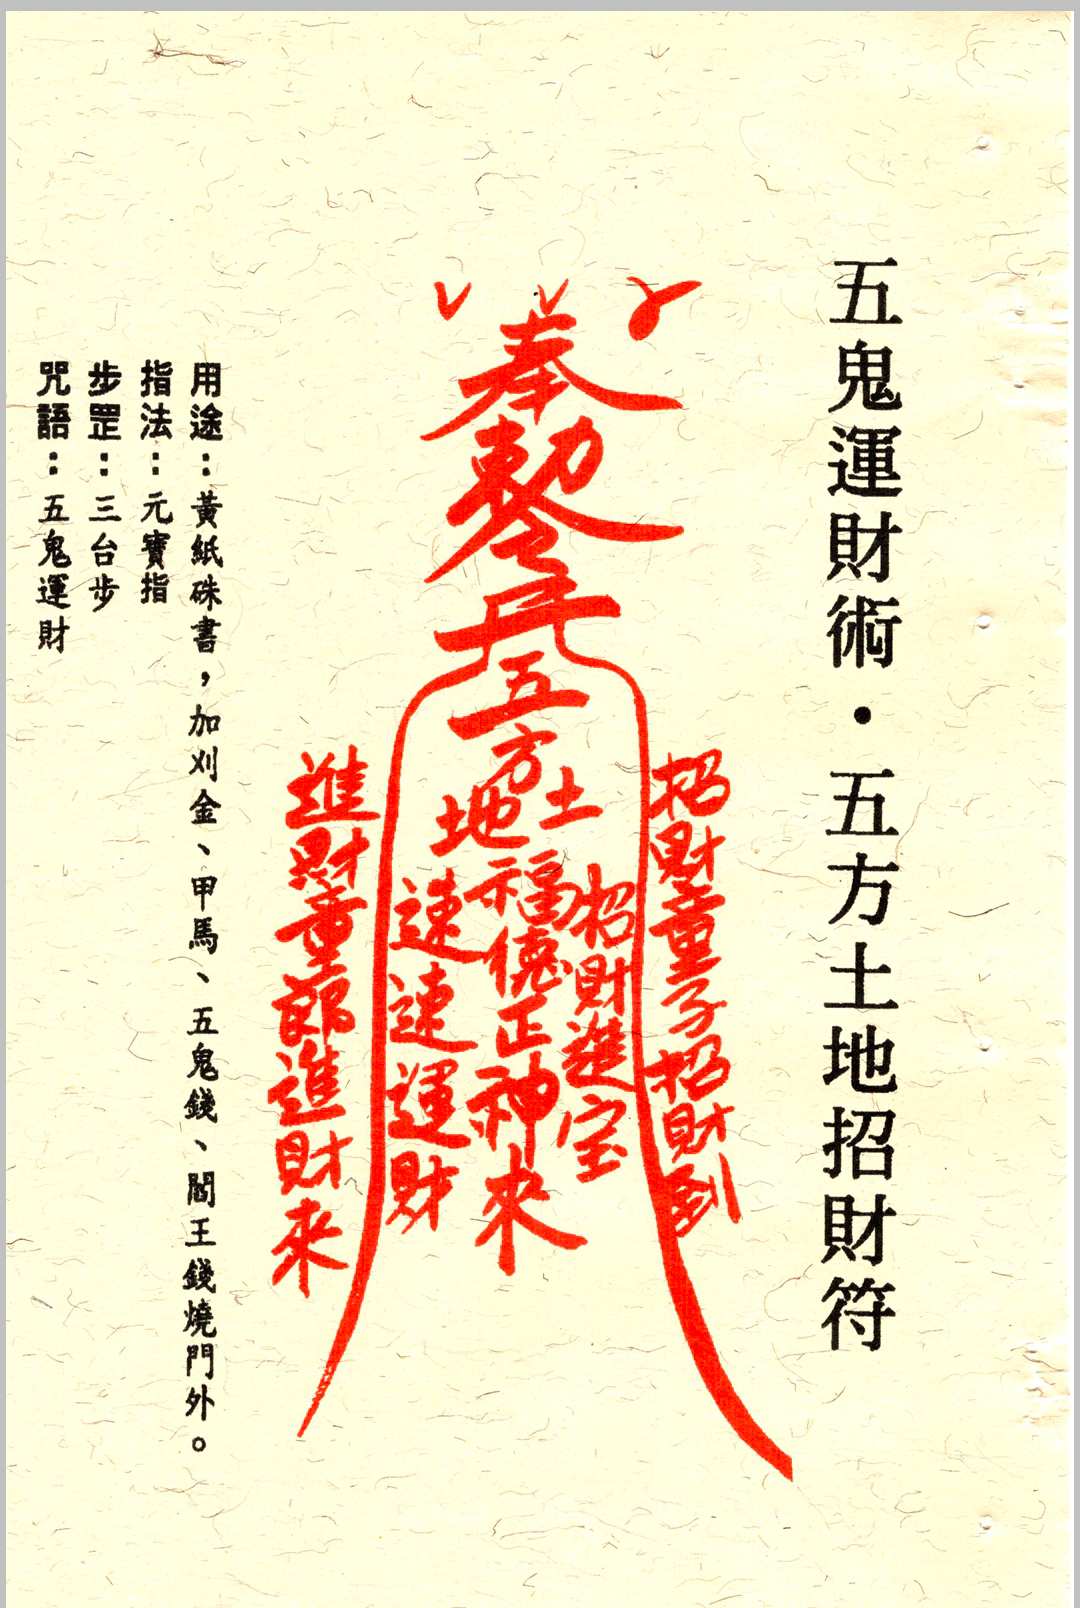 五鬼運財術・五方土地招財符
奉
勅令
五
方
土地
福德正神來
招財進宝
速速運財
招財童子招財到
進財童郎進財来
用途：黃紙硃書，加刈金、甲馬、五鬼錢、閻王錢燒門外。
指法：元寶指
步罡：三台步
咒語：五鬼運財